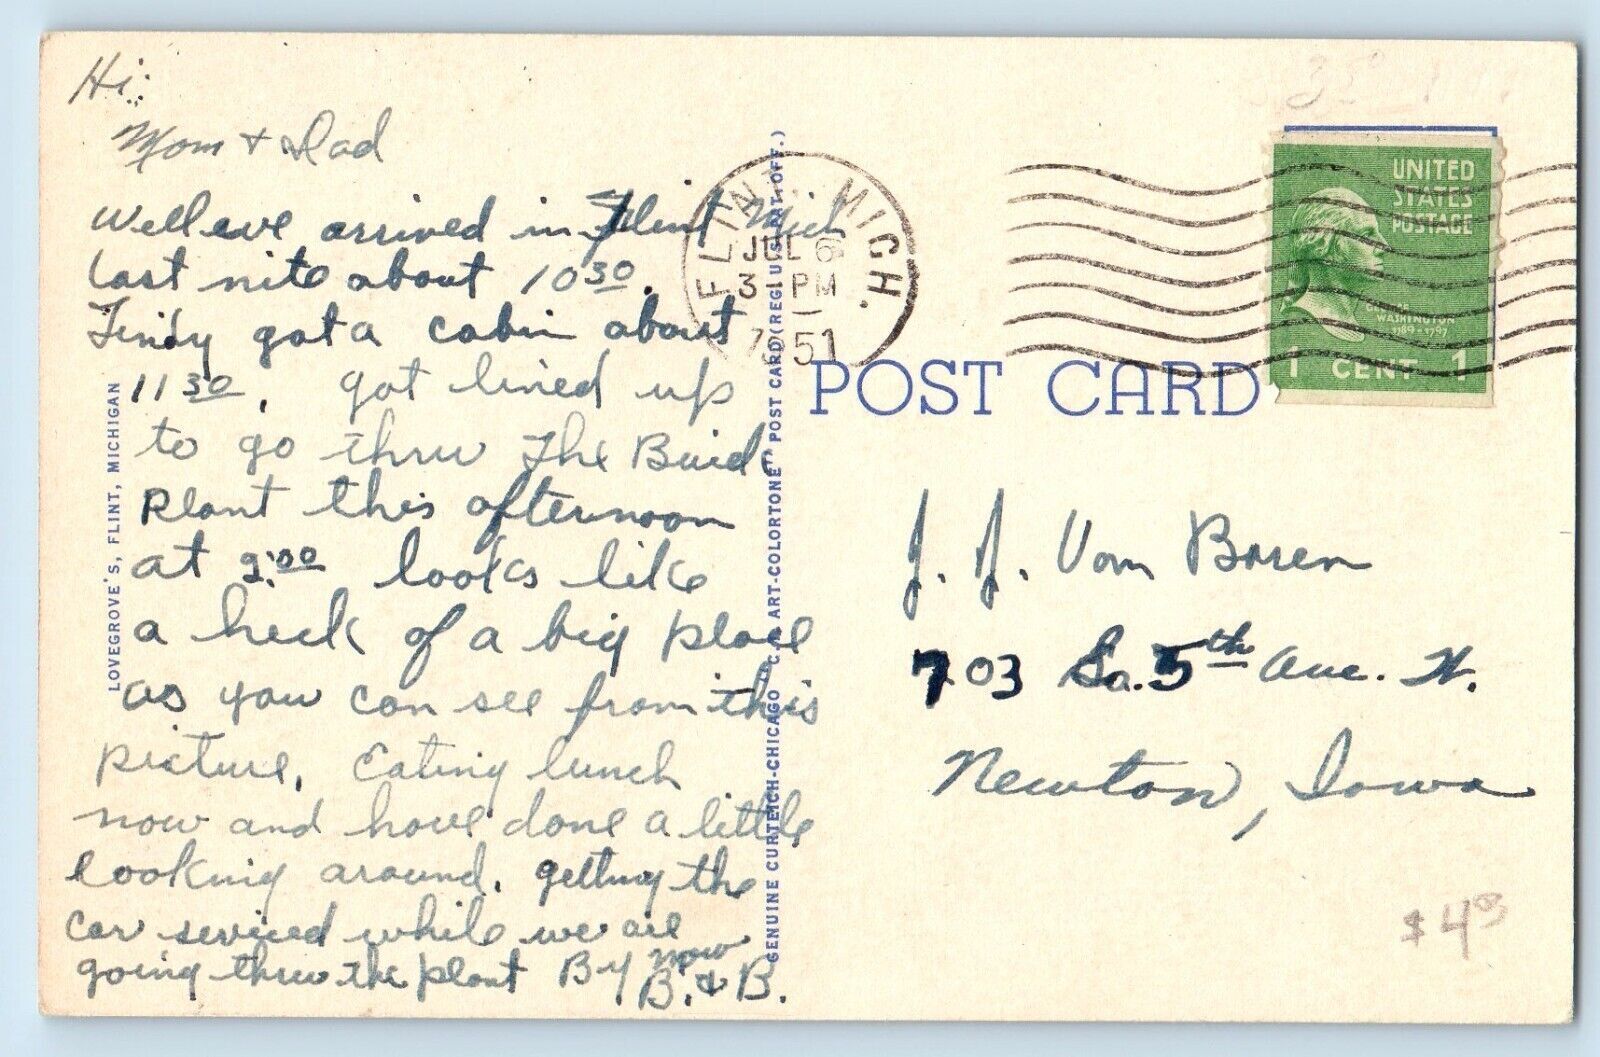 Hi:
Mom + Dad
Well we arrived in Flint Mich
last nite about 10 30.
Findy got a cabin about
11 30. got lined up
to go thru the Buick
plant this afternoon
at 2:00 looks like
a heck of a big place
as you can see from this
picture. Eating lunch
now and have done a little
looking around. getting the
car serviced while we are
going thru the plant By now
B. & B.
LOVEGROVE'S, FLINT, MICHIGAN
GENUINE CURTEICH-CHICAGO "C.T. ART-COLORTONE" POST CARD (REG. U.S. PAT. OFF.)
FLINT, MICH.
JUL 6
3 - PM
1951
UNITED
STATES
POSTAGE
WASHINGTON
1789-1797
1 CENT 1
POST CARD
J. J. Van Buren
703 So. 5th Ave. W.
Newton, Iowa
$4 00